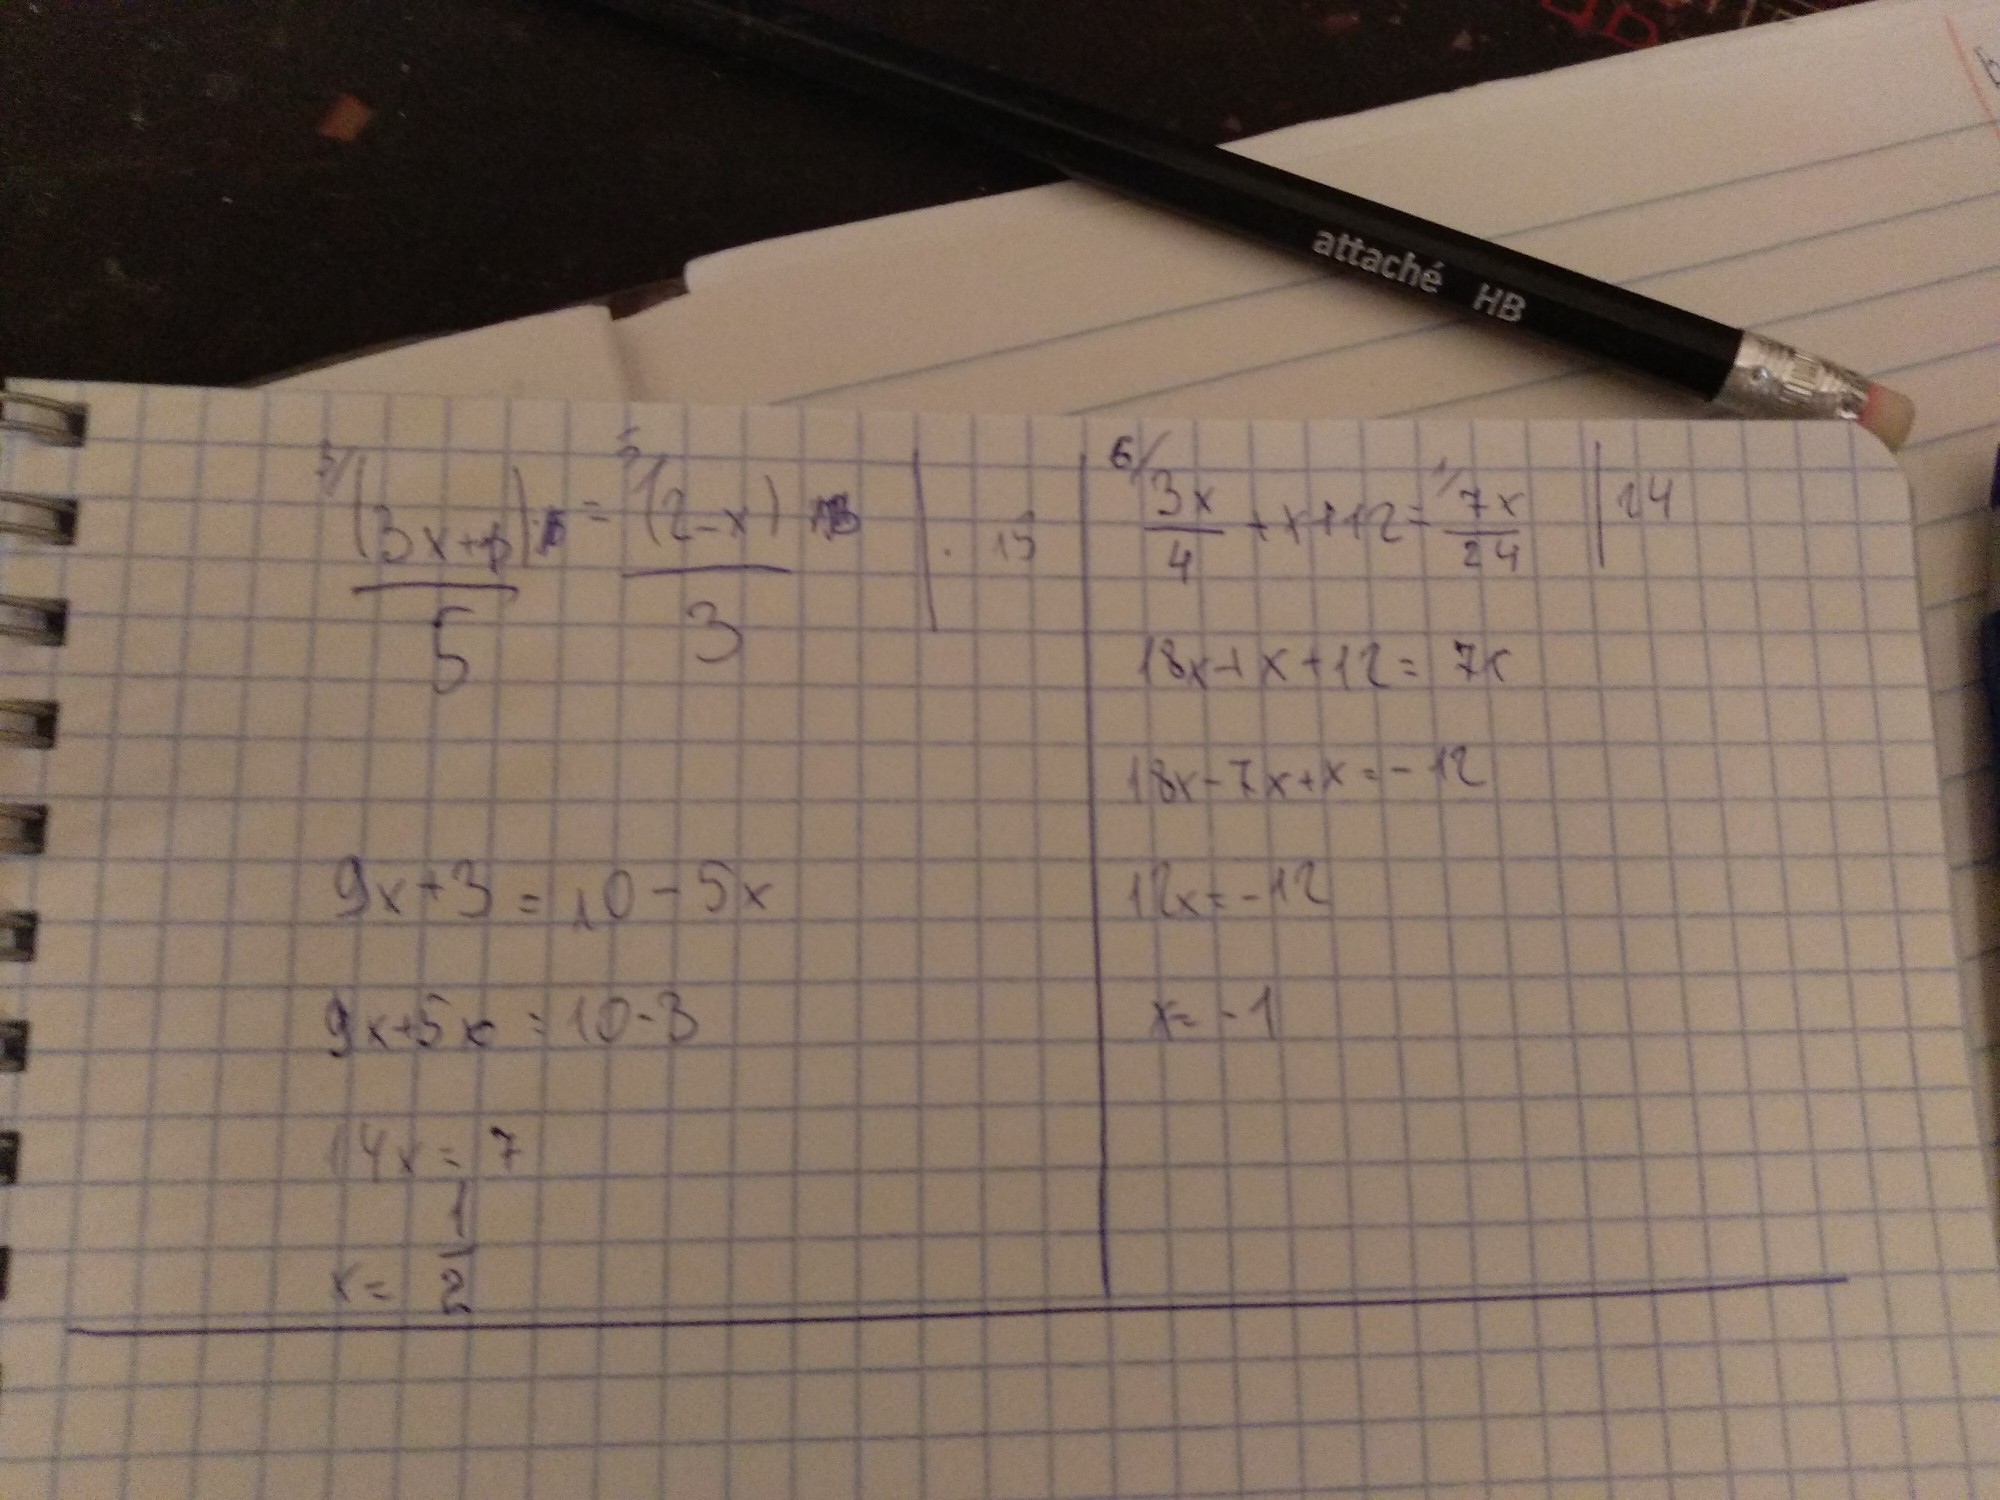 attaché HB
3/ (3x+1) = 5/ (2-x) | · 15
5 3
9x+3 = 10-5x
9x+5x = 10-3
14x = 7
x = 1/2
6/ 3x/4 + x+12 = 1/ 7x/24 | 24
18x+x+12 = 7x
18x-7x+x = -12
12x = -12
x = -1